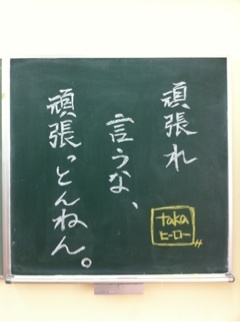 頑張れ
言うな、
頑張っとんねん。
taka
ヒーロー